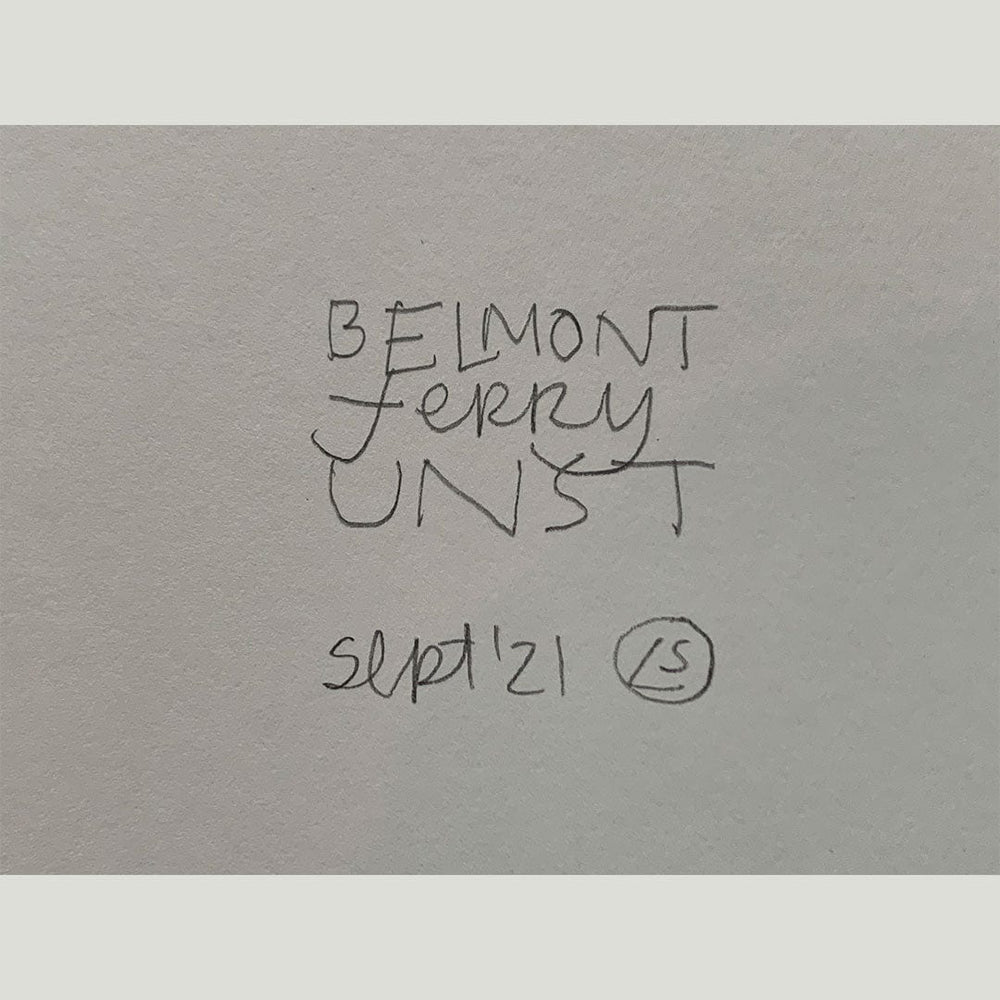 BELMONT
ferry
UNST
sept '21 LS